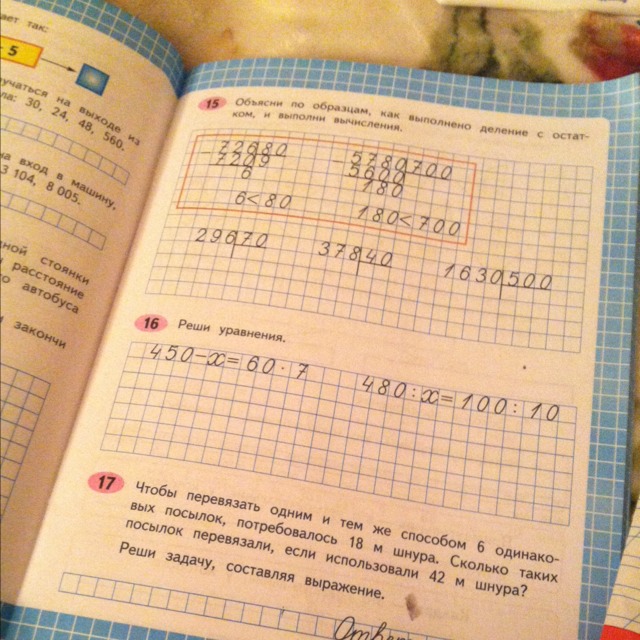 ает так:
5
лучаться на выходе из
ла: 30, 24, 48, 560.
на вход в машину,
3 104, 8 005.
дной стоянки
расстояние
го автобуса
закончи
15 Объясни по образцам, как выполнено деление с остат-
ком, и выполни вычисления.
726|80
720|9
6
6<80
5780|700
5600|8
180
180<700
296|70
378|40
1630|500
16 Реши уравнения.
450-x=60·7
480:x=100:10
17 Чтобы перевязать одним и тем же способом 6 одинако-
вых посылок, потребовалось 18 м шнура. Сколько таких
посылок перевязали, если использовали 42 м шнура?
Реши задачу, составляя выражение.